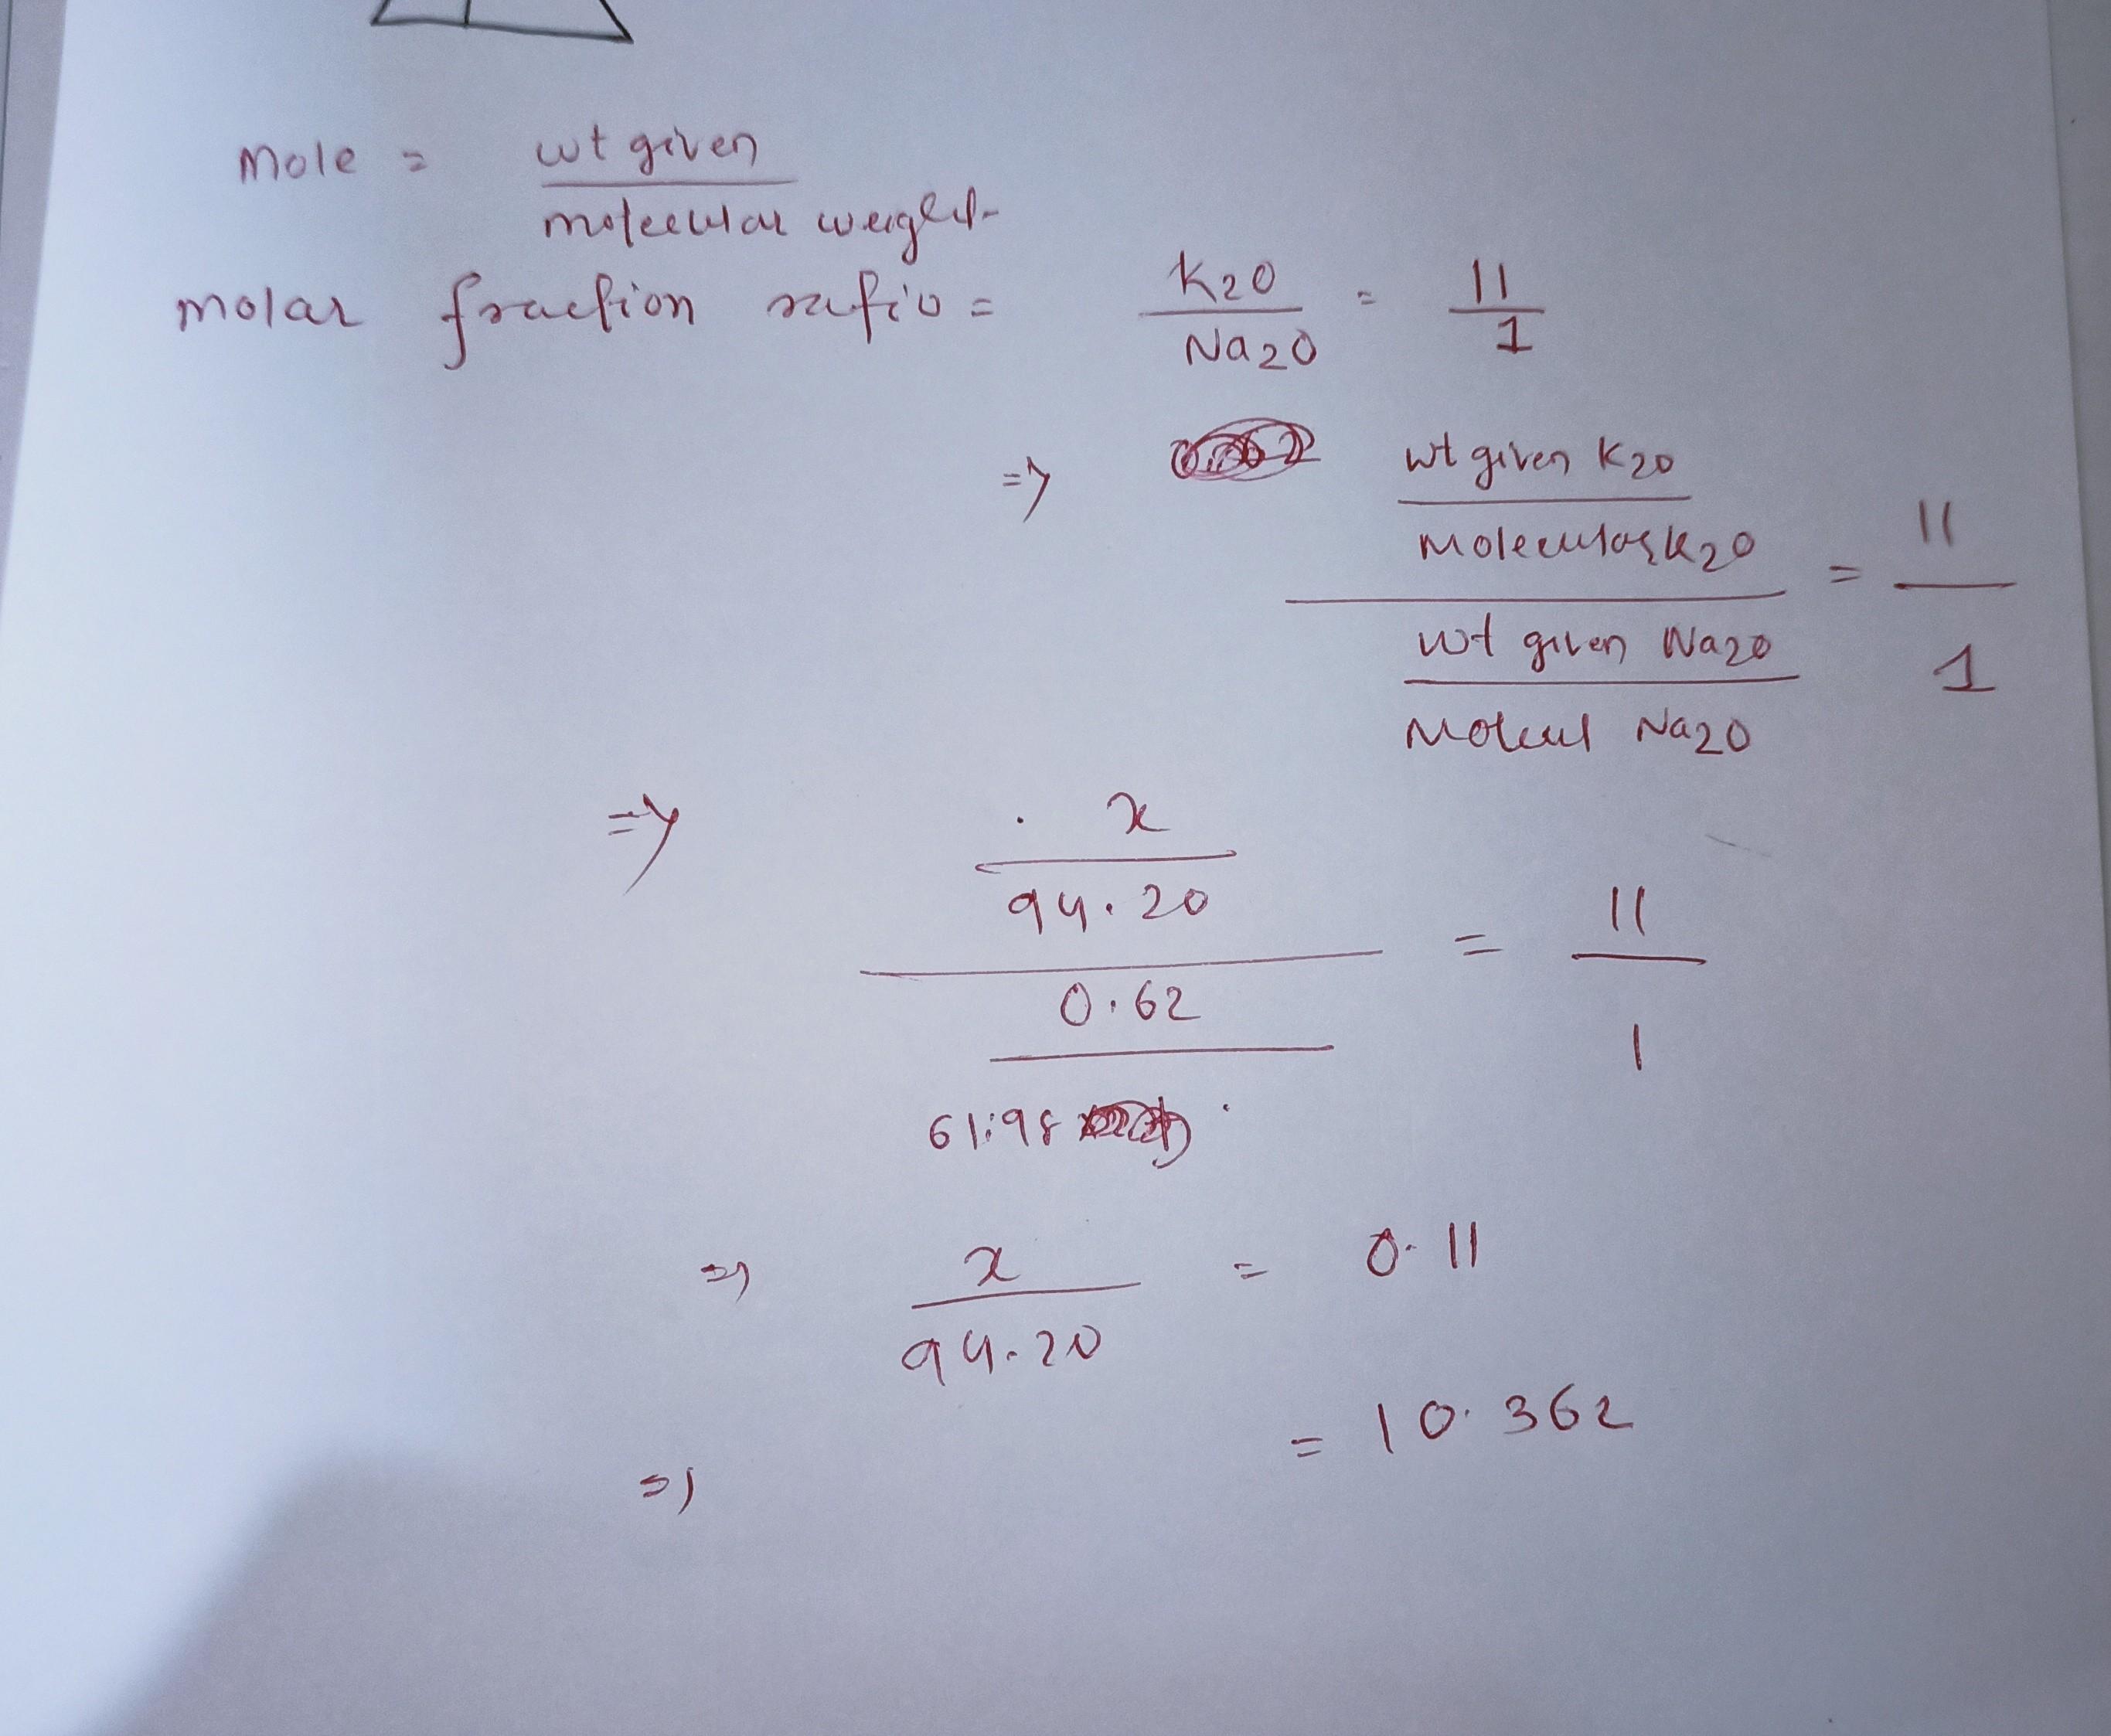 Mole = wt given
molecular weight
molar fraction ratio = K20 = 11
Na20 1
=> wt given K20
Molecular K20 = 11
wt given Na20 1
Molecul Na20
=> x
94.20 = 11
0.62 1
61.98
=> x = 0.11
94.20
= 10.362
=>